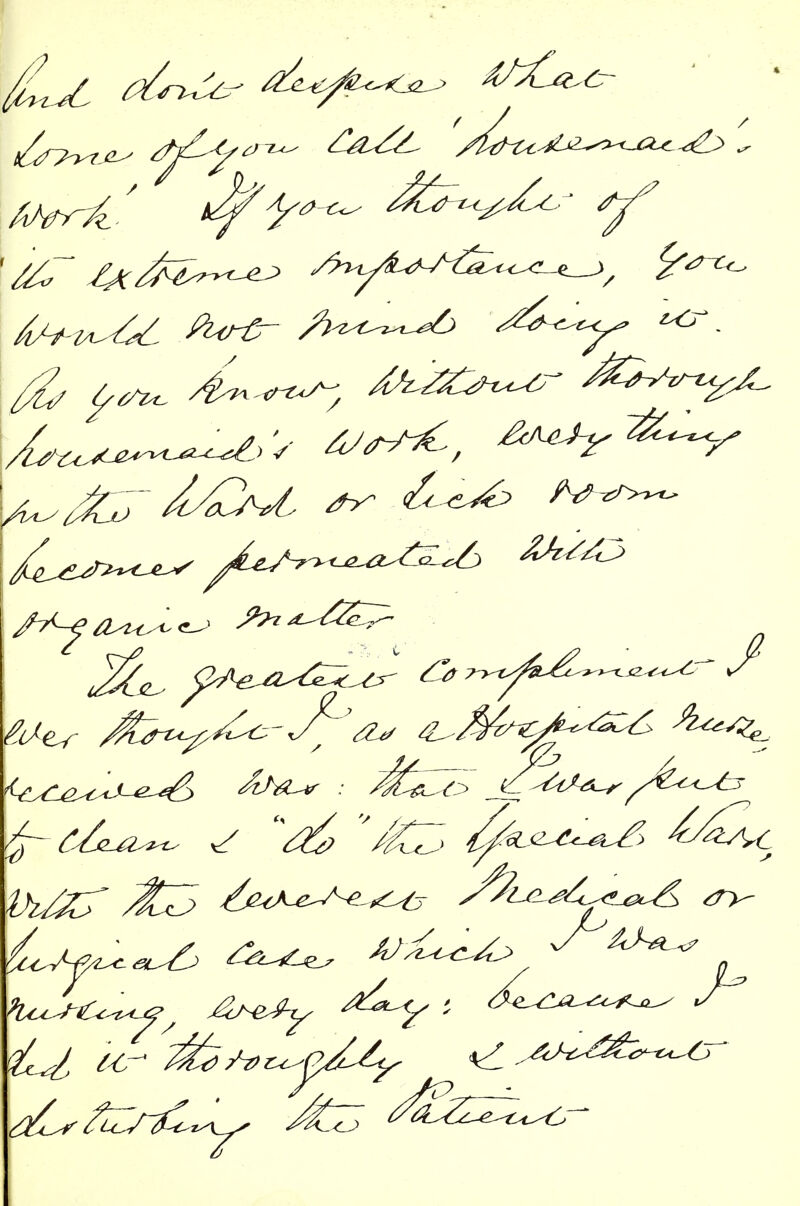 And don't despise what
some of you call 'housemaid's
work.' If you thought of
its extreme importance, you
would not mind doing it.
As you know, without thorough
housemaid's work, every thing
in the Ward or sick room
becomes permeated with
organic matter
The greatest compliment I
ever thought I, as a Hospital nurse,
received was: that I was put
to clean & "do" the Special Ward,
with the severest Medical or
Surgical case which I was
nursing, every day: because I
did it thoroughly & without
disturbing the Patient